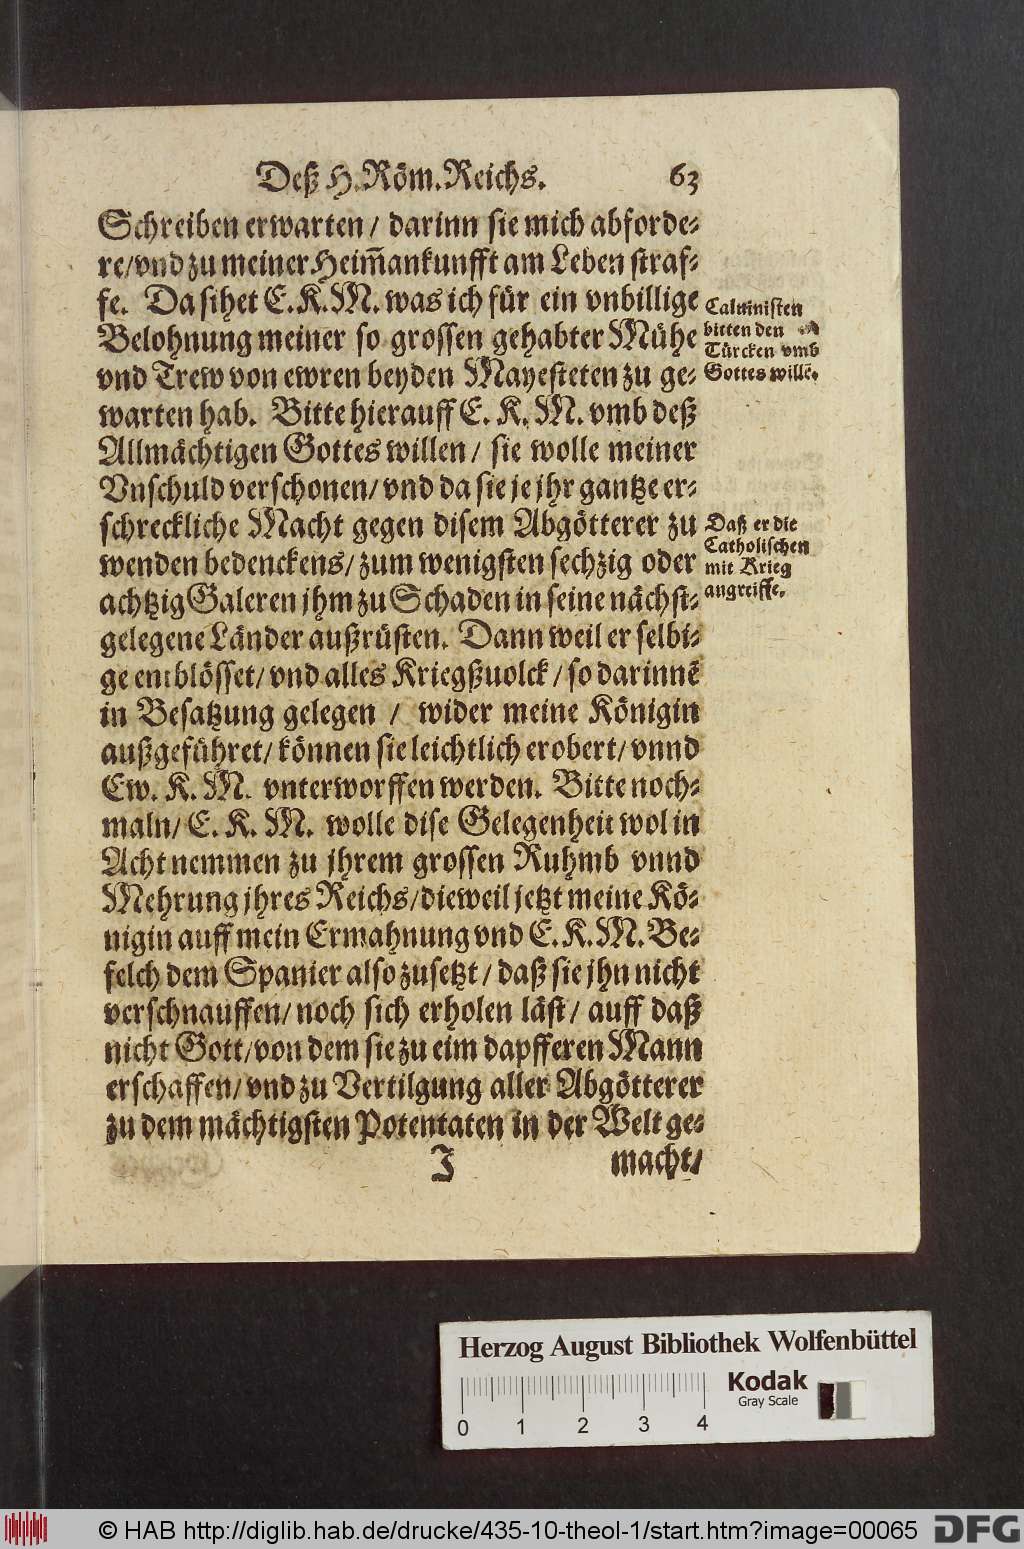 Deß H. Röm. Reichs. 63
Schreiben erwarten / darinn sie mich abforde⸗
re/vnd zu meiner Heim̅ankunfft am Leben straf⸗
fe. Da sihet E. K. M. was ich für ein vnbillige
Belohnung meiner so grossen gehabter Mühe
vnd Trew von ewren beyden Mayesteten zu ge⸗
warten hab. Bitte hierauff E. K. M. vmb deß
Allmächtigen Gottes willen / sie wolle meiner
Vnschuld verschonen/ vnd da sie je jhr gantze er⸗
schreckliche Macht gegen disem Abgötterer zu
wenden bedenckens / zum wenigsten sechzig oder
achtzig Galeren jhm zu Schaden in seine nächst⸗
gelegene Länder außrüsten. Dann weil er selbi⸗
ge entblösset/ vnd alles Kriegßuolck / so darinnē
in Besatzung gelegen / wider meine Königin
außgeführet/ können sie leichtlich erobert/ vnnd
Ew. K. M. vnterworffen werden. Bitte noch⸗
maln/ E. K. M. wolle dise Gelegenheit wol in
Acht nemmen zu jhrem grossen Ruhmb vnnd
Mehrung jhres Reichs/dieweil jetzt meine Kö⸗
nigin auff mein Ermahnung vnd E. K. M. Be⸗
felch dem Spanier also zusetzt / daß sie jhn nicht
verschnauffen/ noch sich erholen läst / auff daß
nicht Gott/von dem sie zu eim dapfferen Mann
erschaffen/ vnd zu Vertilgung aller Abgötterer
zu dem mächtigsten Potentaten in der Welt ge⸗
J macht/
Caluinisten
bitten den
Türcken vmb
Gottes willē.
Daß er die
Catholischen
mit Krieg
angreiffe.
Herzog August Bibliothek Wolfenbüttel
Kodak
Gray Scale
0 1 2 3 4
© HAB http://diglib.hab.de/drucke/435-10-theol-1/start.htm?image=00065
DFG